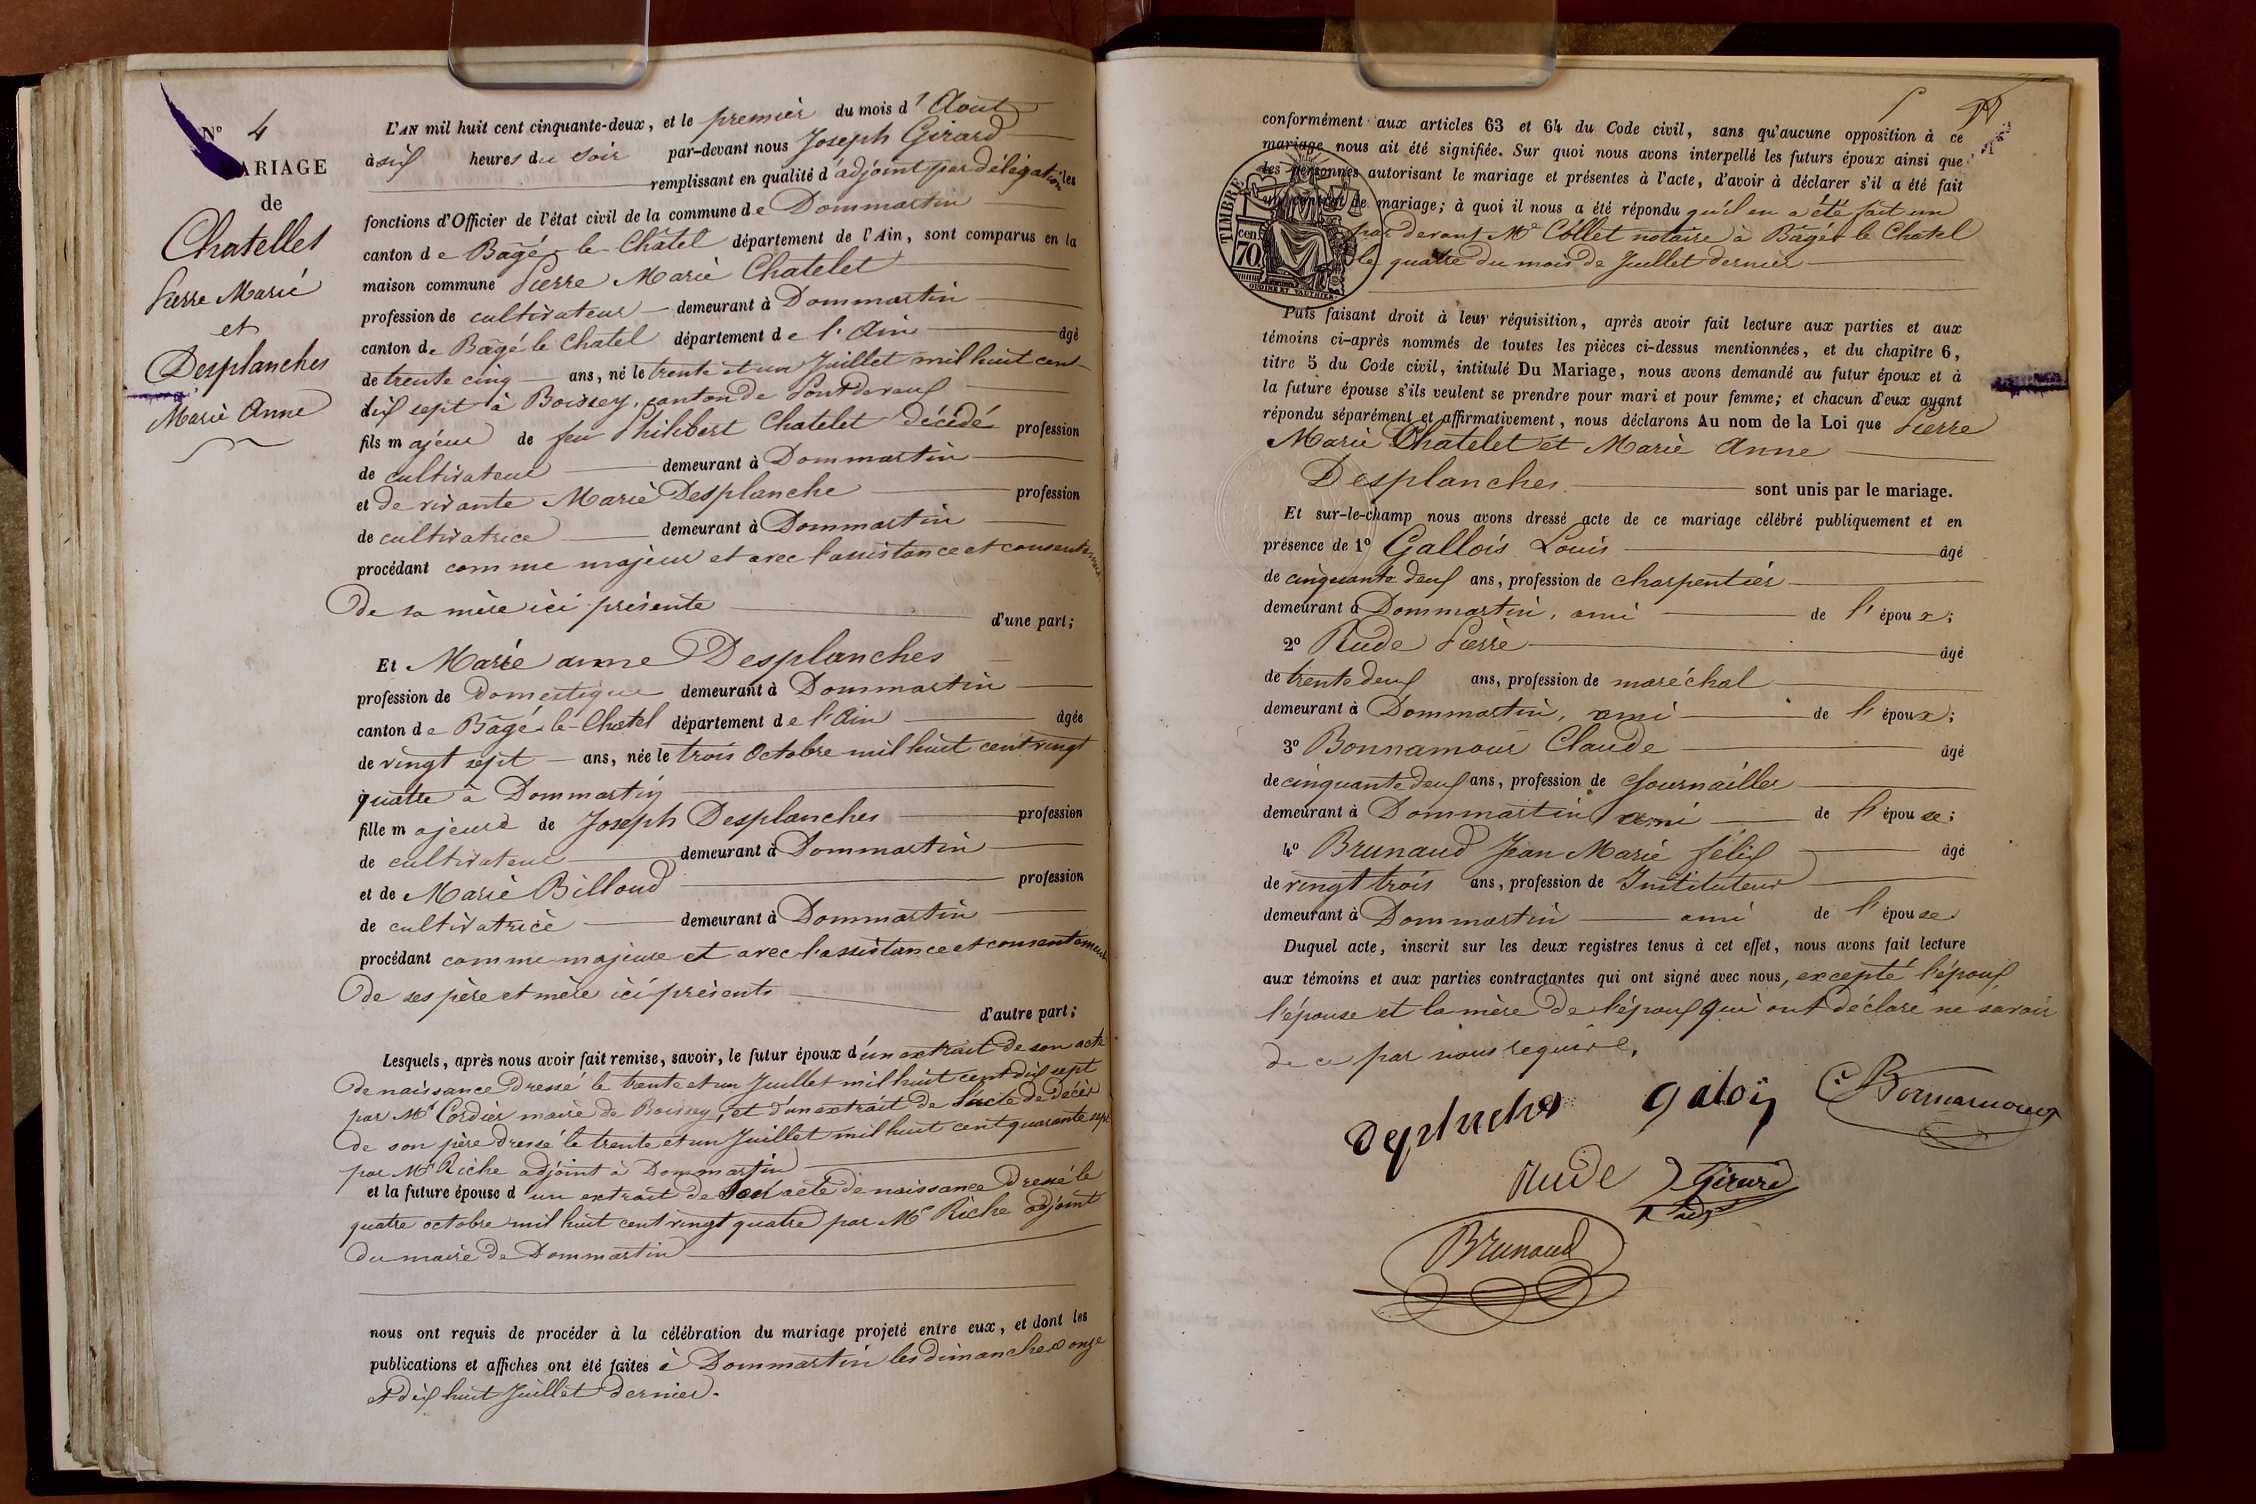 N° 4
MARIAGE
de
Chatellet
Pierre Marie
et
Desplanches
Marie Anne
L'AN mil huit cent cinquante-deux, et le premier du mois d'Aout
à six heures du Soir par-devant nous Joseph Girard
remplissant en qualité d'adjoint par délégation les
fonctions d'Officier de l'état civil de la commune de Dommartin
canton de Bâgé-le-Châtel département de l'Ain, sont comparus en la
maison commune Pierre Marie Chatelet
profession de cultivateur demeurant à Dommartin
canton de Bâgé le Chatel département de l'Ain âgé
de trente cinq ans, né le trente et un Juillet mil huit cent
dix sept à Boissey, canton de Pontdevaux
fils majeur de feu Philibert Chatelet décédé profession
de cultivateur demeurant à Dommartin
et de vivante Marie Desplanche profession
de cultivatrice demeurant à Dommartin
procédant comme majeur et avec l'assistance et consentement
de sa mère ici présente d'une part;
Et Marie anne Desplanches
profession de Domestique demeurant à Dommartin
canton de Bâgé-le-Chatel département de l'Ain âgée
de vingt sept ans, née le trois Octobre mil huit cent vingt
quatre à Dommartin
fille majeure de Joseph Desplanches profession
de cultivateur demeurant à Dommartin
et de Marie Billoud profession
de cultivatrice demeurant à Dommartin
procédant comme majeure et avec l'assistance et consentement
de ses père et mère ici présents
d'autre part;
Lesquels, après nous avoir fait remise, savoir, le futur époux d'un extrait de son acte
de naissance dressé le trente et un Juillet mil huit cent dix sept
par Mr Cordier maire de Boissey, et d'un extrait de l'acte de décès
de son père dressé le trente et un Juillet mil huit cent quarante sept
par Mr Riche adjoint à Dommartin
et la future épouse d'un extrait de son acte de naissance dressé le
quatre octobre mil huit cent vingt quatre par Mr Riche adjoint
du maire de Dommartin
nous ont requis de procéder à la célébration du mariage projeté entre eux, et dont les
publications et affiches ont été faites à Dommartin les dimanches onze
et dix huit Juillet dernier.
conformément aux articles 63 et 64 du Code civil, sans qu'aucune opposition à ce
mariage nous ait été signifiée. Sur quoi nous avons interpellé les futurs époux ainsi que
les personnes autorisant le mariage et présentes à l'acte, d'avoir à déclarer s'il a été fait
un contrat de mariage; à quoi il nous a été répondu qu'il en a été fait un
par devant Me Collet notaire à Bâgé le Chatel
le quatre du mois de Juillet dernier
TIMBRE
cen
70
OUDINE ET VAUTHIER
Puis faisant droit à leur réquisition, après avoir fait lecture aux parties et aux
témoins ci-après nommés de toutes les pièces ci-dessus mentionnées, et du chapitre 6,
titre 5 du Code civil, intitulé Du Mariage, nous avons demandé au futur époux et à
la future épouse s'ils veulent se prendre pour mari et pour femme; et chacun d'eux ayant
répondu séparément et affirmativement, nous déclarons Au nom de la Loi que Pierre
Marie Chatelet et Marie Anne
Desplanches sont unis par le mariage.
Et sur-le-champ nous avons dressé acte de ce mariage célébré publiquement et en
présence de 1° Gallois Louis âgé
de cinquante deux ans, profession de charpentier
demeurant à Dommartin, ami de l'époux;
2° Rude Pierre âgé
de trente deux ans, profession de maréchal
demeurant à Dommartin, ami de l'époux;
3° Bonnamour Claude âgé
de cinquante deux ans, profession de Journailler
demeurant à Dommartin ami de l'épouse;
4° Brunaud Jean Marie félix âgé
de vingt trois ans, profession de Instituteur
demeurant à Dommartin ami de l'épouse
Duquel acte, inscrit sur les deux registres tenus à cet effet, nous avons fait lecture
aux témoins et aux parties contractantes qui ont signé avec nous, excepté l'époux
l'épouse et la mère de l'époux qui ont déclaré ne savoir
de ce par nous requise.
Galois
C Bonnamour
Rude
J Girard
adj
Brunaud